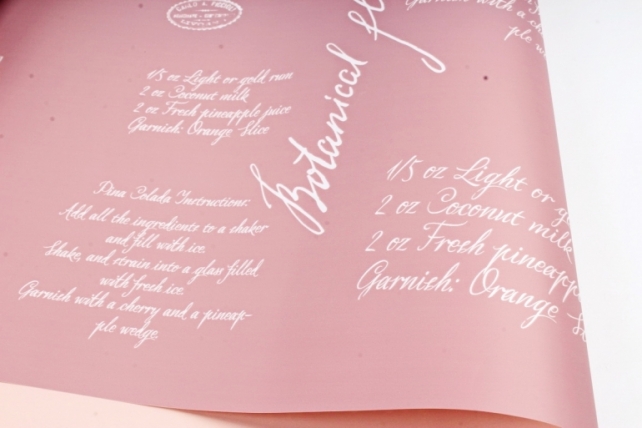 Garnish with a c
ple w
1/5 oz Light or gold rum
2 oz Coconut milk
2 oz Fresh pineapple juice
Garnish: Orange Slice
Botanical fl
Pina Colada Instructions:
Add all the ingredients to a chaker
and fill with ice.
Shake, and strain into a glass filled
with fresh ice.
Garnish with a cherry and a pineap-
ple wedge.
1/5 oz Light or g
2 oz Coconut milk
2 oz Fresh pineapp
Garnish: Orange Sl